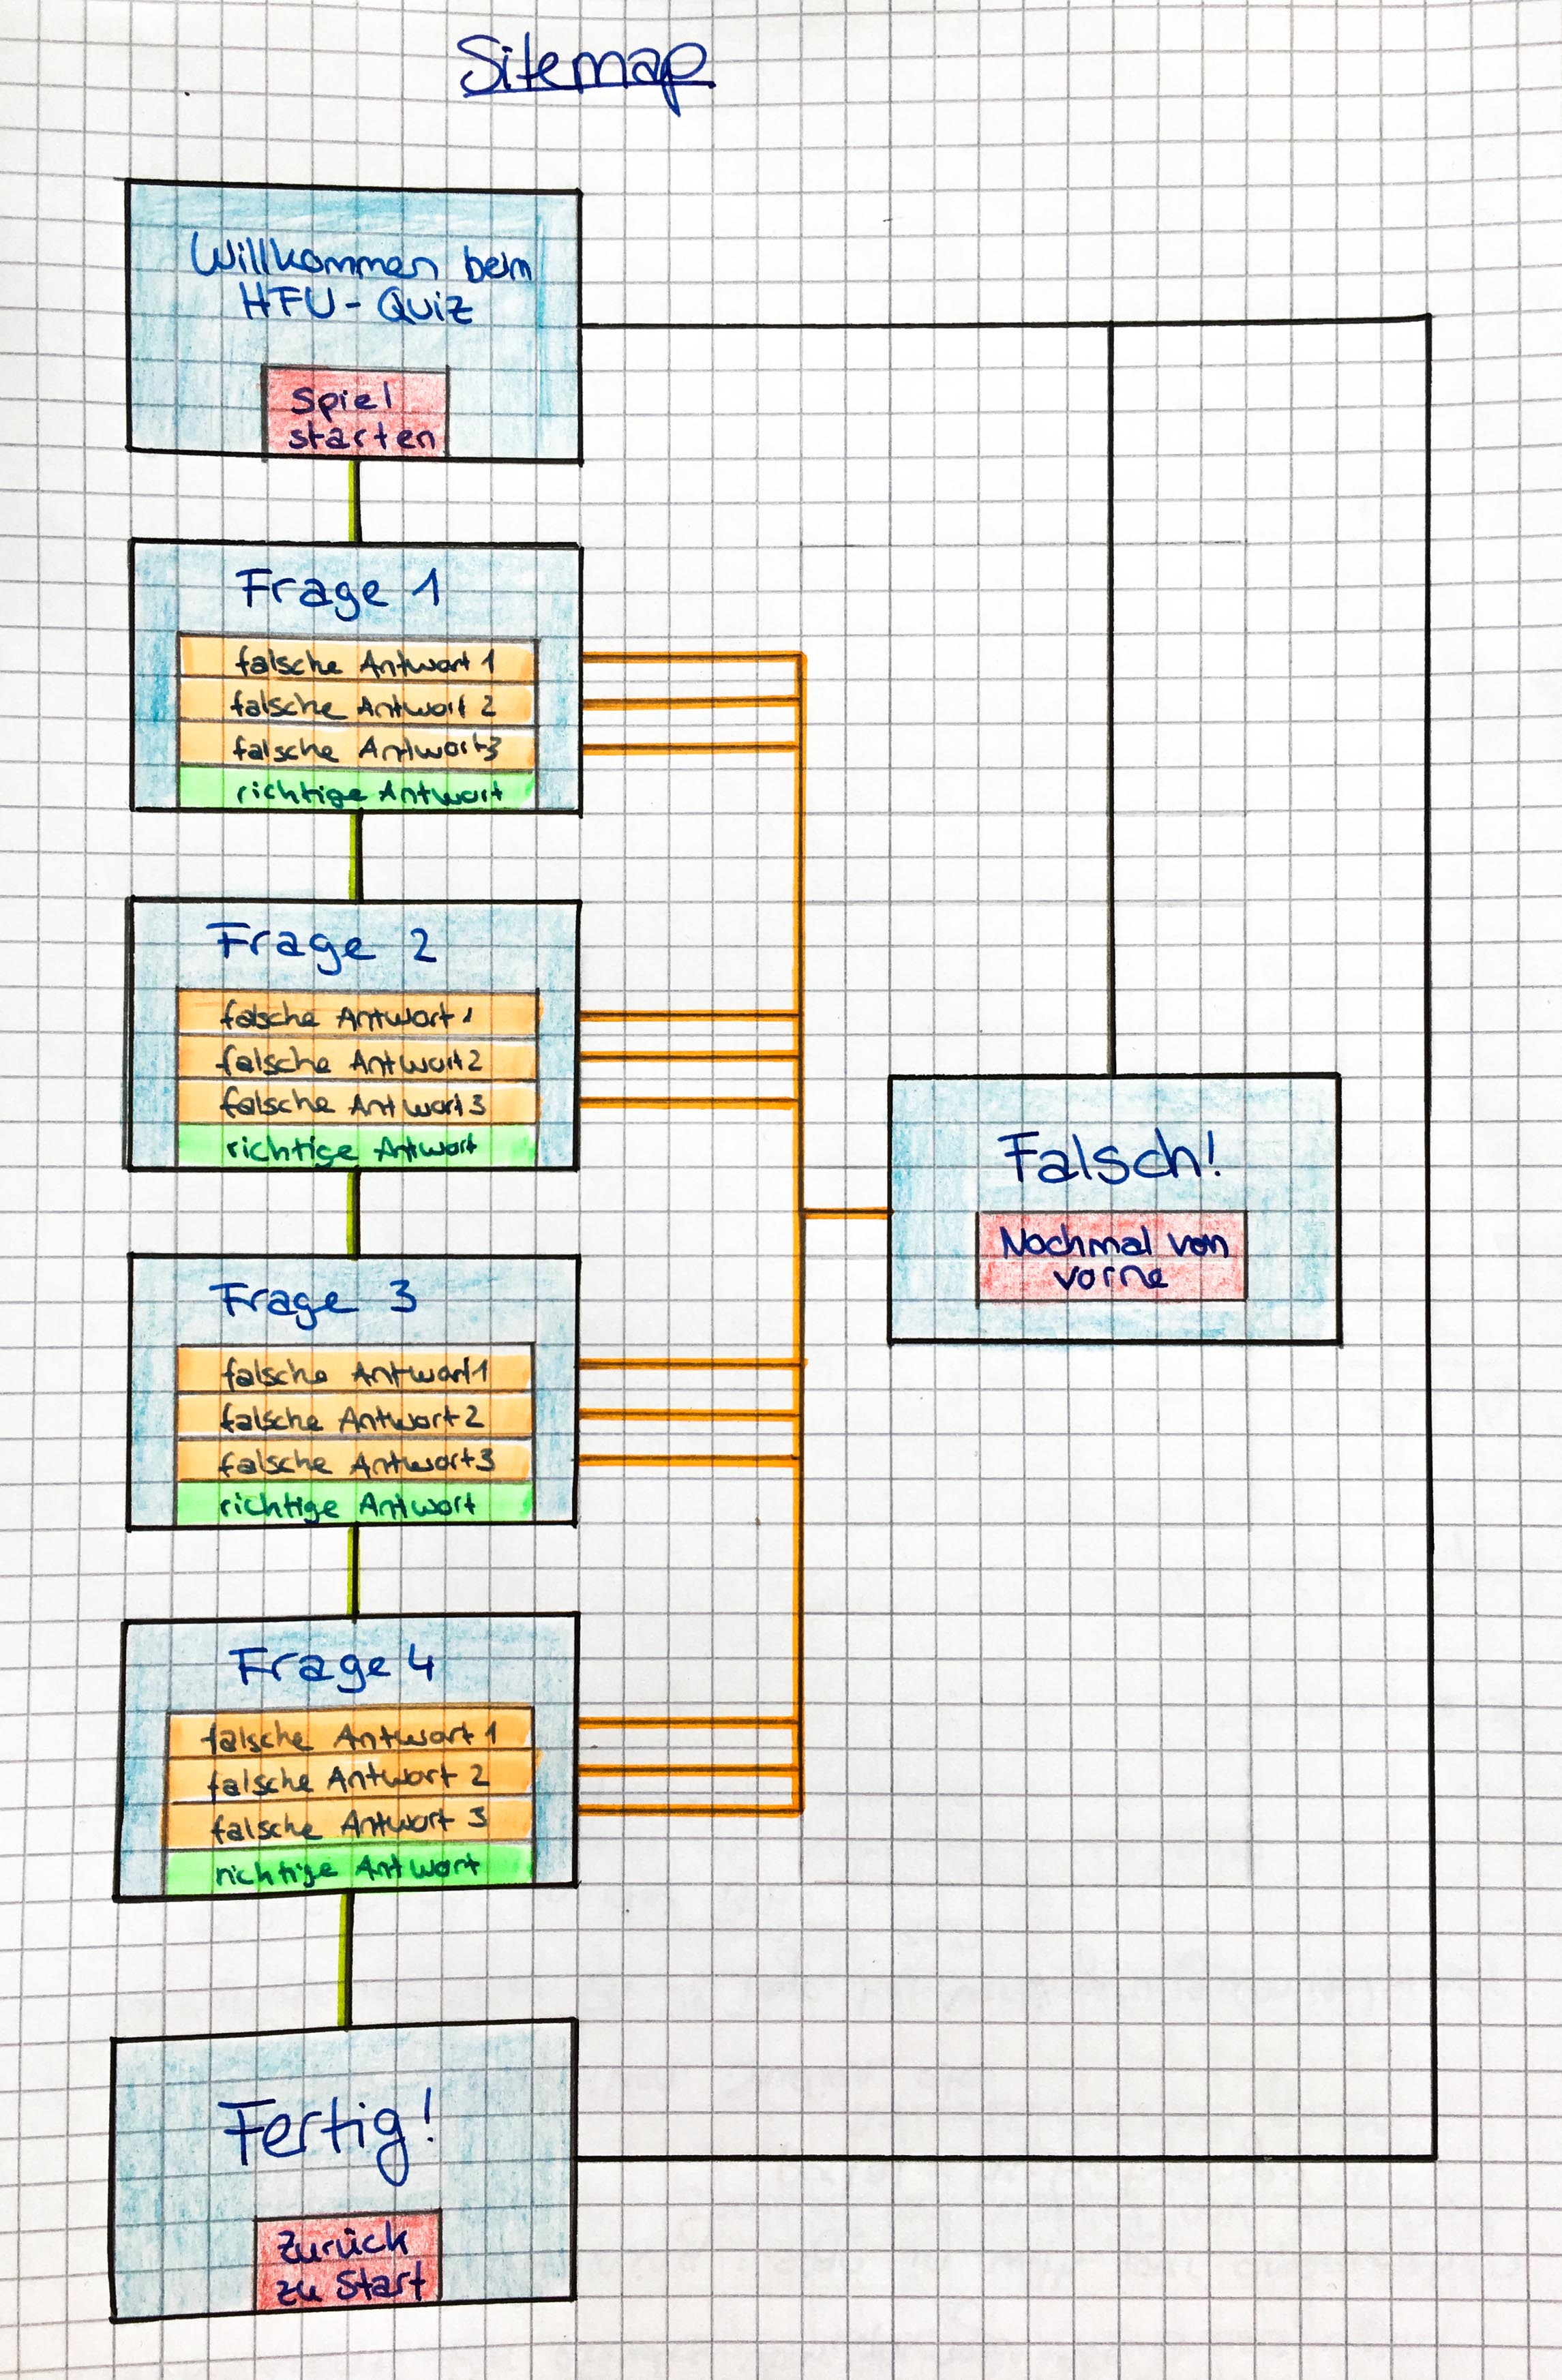 Sitemap
Willkommen beim
HFU-Quiz
Spiel
starten
Frage 1
falsche Antwort 1
falsche Antwort 2
falsche Antwort 3
richtige Antwort
Frage 2
falsche Antwort 1
falsche Antwort 2
falsche Antwort 3
richtige Antwort
Falsch!
Nochmal von
vorne
Frage 3
falsche Antwort 1
falsche Antwort 2
falsche Antwort 3
richtige Antwort
Frage 4
falsche Antwort 1
falsche Antwort 2
falsche Antwort 3
richtige Antwort
Fertig!
Zurück
zu Start